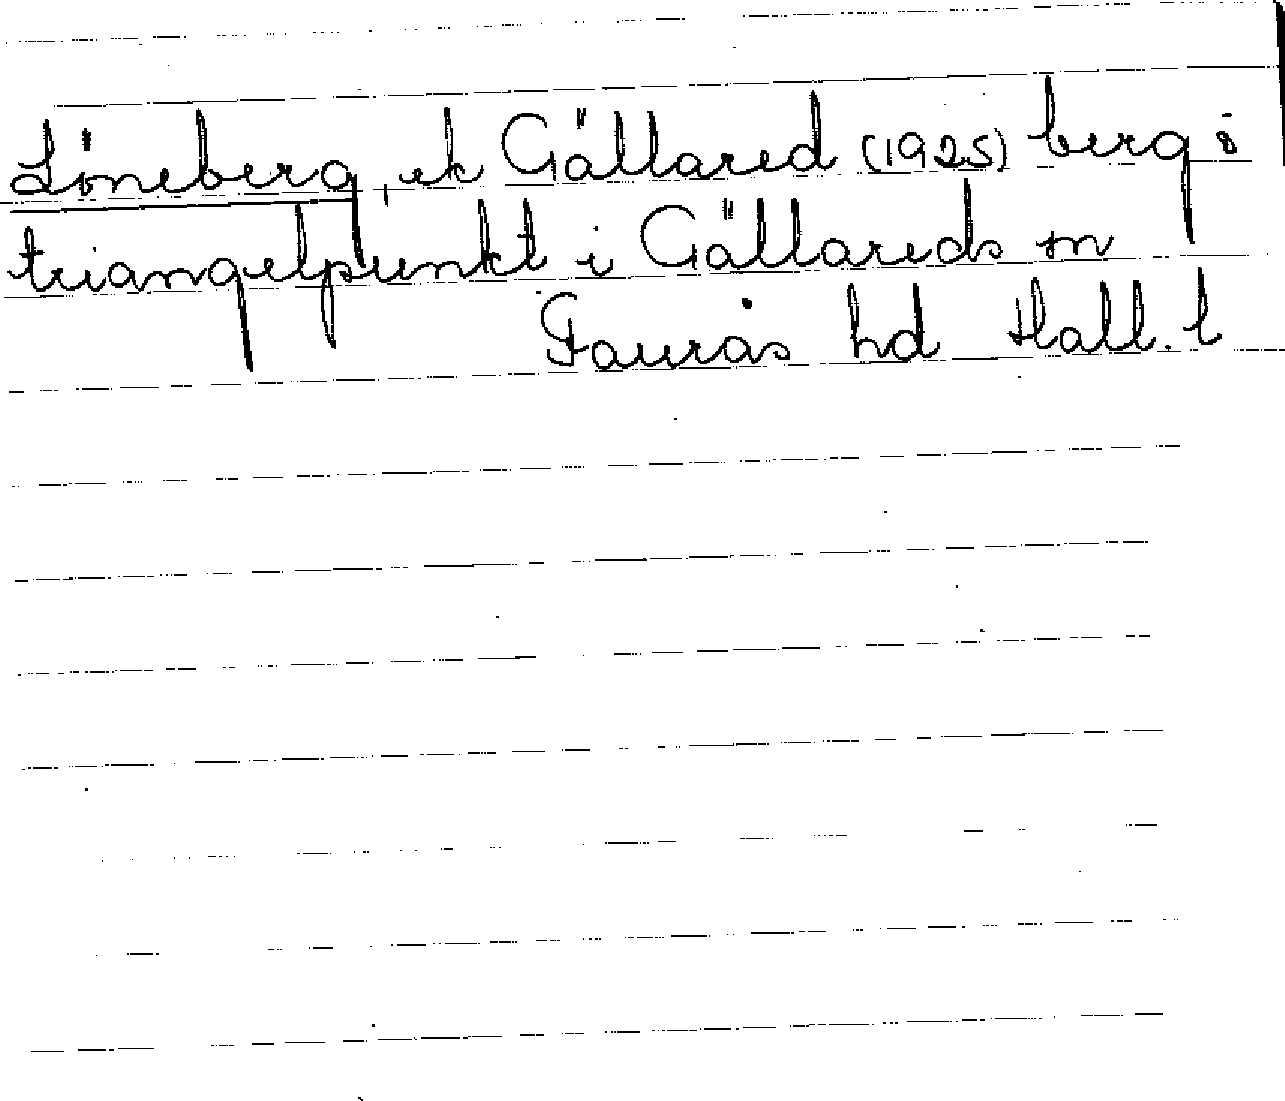 Löneberg, ek Gällared (1925) berg o
triangelpunkt i Gällareds sn
Faurås hd Hall. l